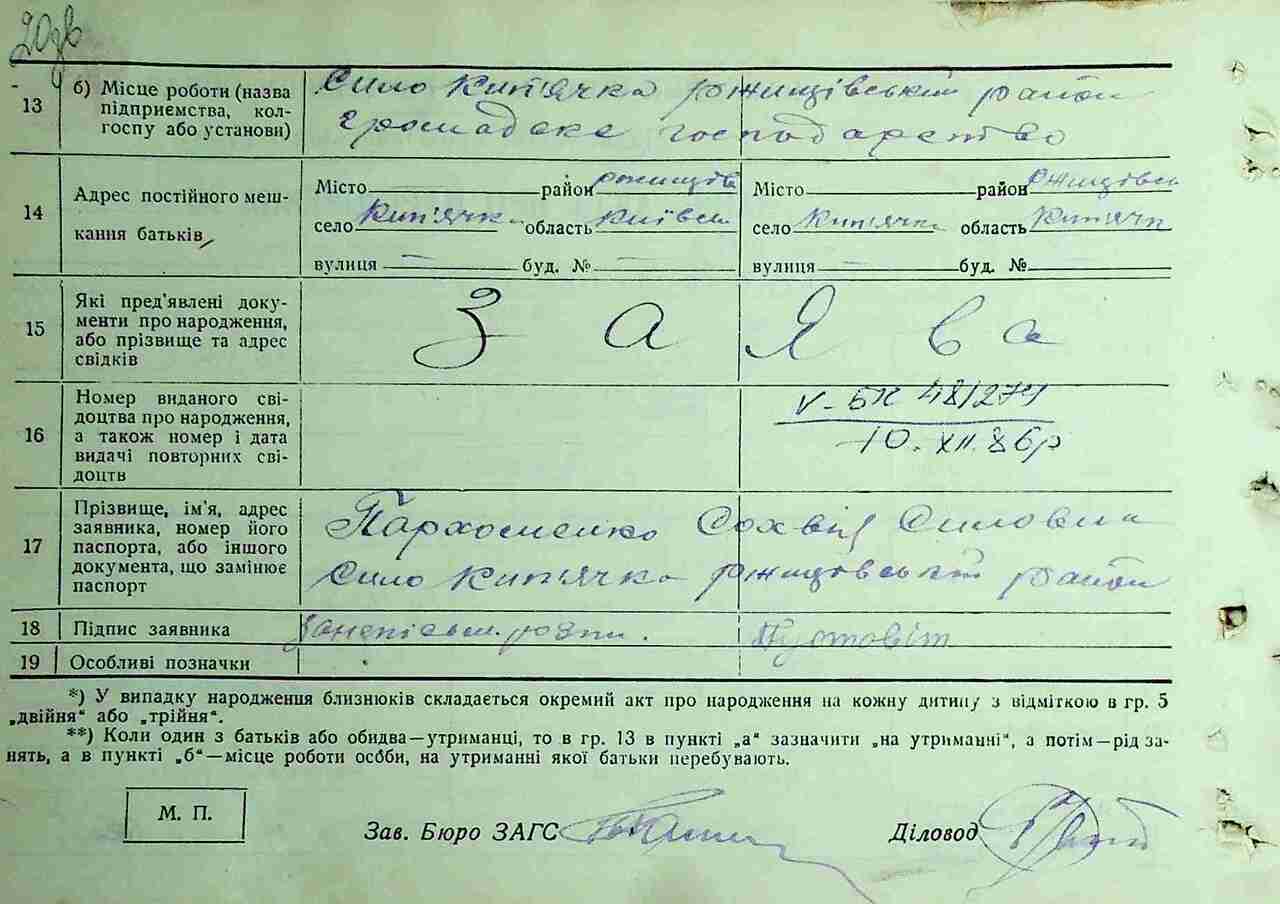 13 б) Місце роботи (назва підприємства, колгоспу або установи) Сило Кип'ячка ржищівський район
громадське господарство
14 Адрес постійного мешкання батьків
Місто район ржищів Місто район ржищівсь
село Кип'ячка область Київськ село Кип'ячка область Кип'ячк
вулиця — буд. № — вулиця — буд. №
15 Які пред'явлені документи про народження, або прізвище та адрес свідків
Заява
16 Номер виданого свідоцтва про народження, а також номер і дата видачі повторних свідоцтв
V-БК 481274
10.XII.86р
17 Прізвище, ім'я, адрес заявника, номер його паспорта, або іншого документа, що замінює паспорт
Пархоменко Сохвія Силовна
Сило Кип'ячка ржищовський район
18 Підпис заявника Пустовіт
19 Особливі позначки
*) У випадку народження близнюків складається окремий акт про народження на кожну дитину з відміткою в гр. 5
„двійня“ або „трійня“.
**) Коли один з батьків або обидва—утриманці, то в гр. 13 в пункті „а“ зазначити „на утриманні“, а потім—рід за-
нять, а в пункті „б“—місце роботи особи, на утриманні якої батьки перебувають.
М. П.
Зав. Бюро ЗАГС Діловод